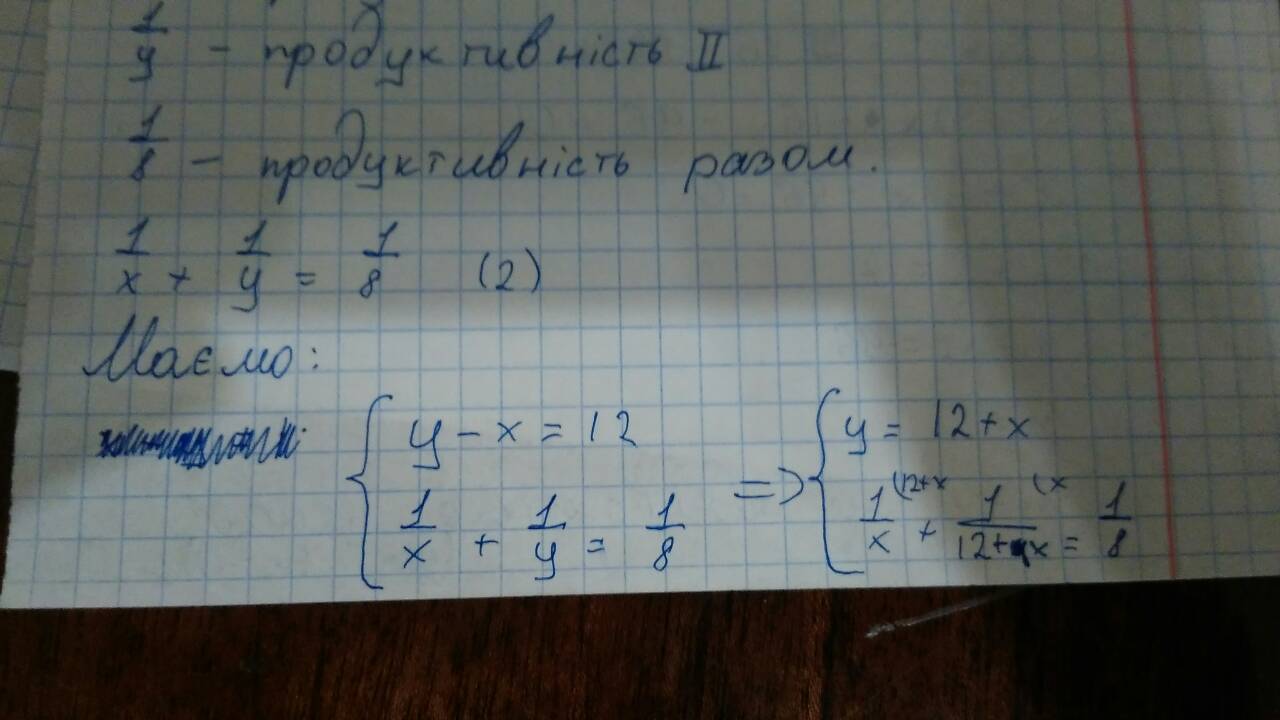 1/y - продуктивність II
1/8 - продуктивність разом.
1/x + 1/y = 1/8 (2)
Маємо:
{ y - x = 12 => { y = 12 + x
{ 1/x + 1/y = 1/8 { 1/x (12+x + 1/12+x (x = 1/8